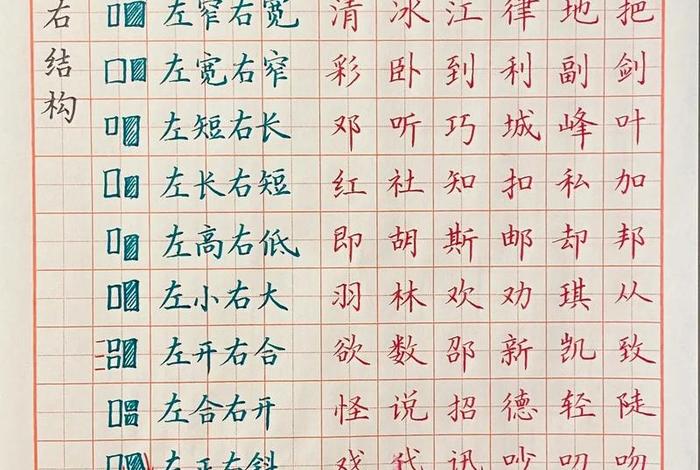 右结构
左窄右宽 清冰江律地把
左宽右窄 彩卧到利副剑
左短右长 邓听巧城峰叶
左长右短 红社知扣私加
左高右低 即胡斯邮却邦
左小右大 羽林欢劝琪从
左开右合 欲数邵新凯致
左合右开 怪说招德轻陡
左正右斜 戏代讯吵叨吻